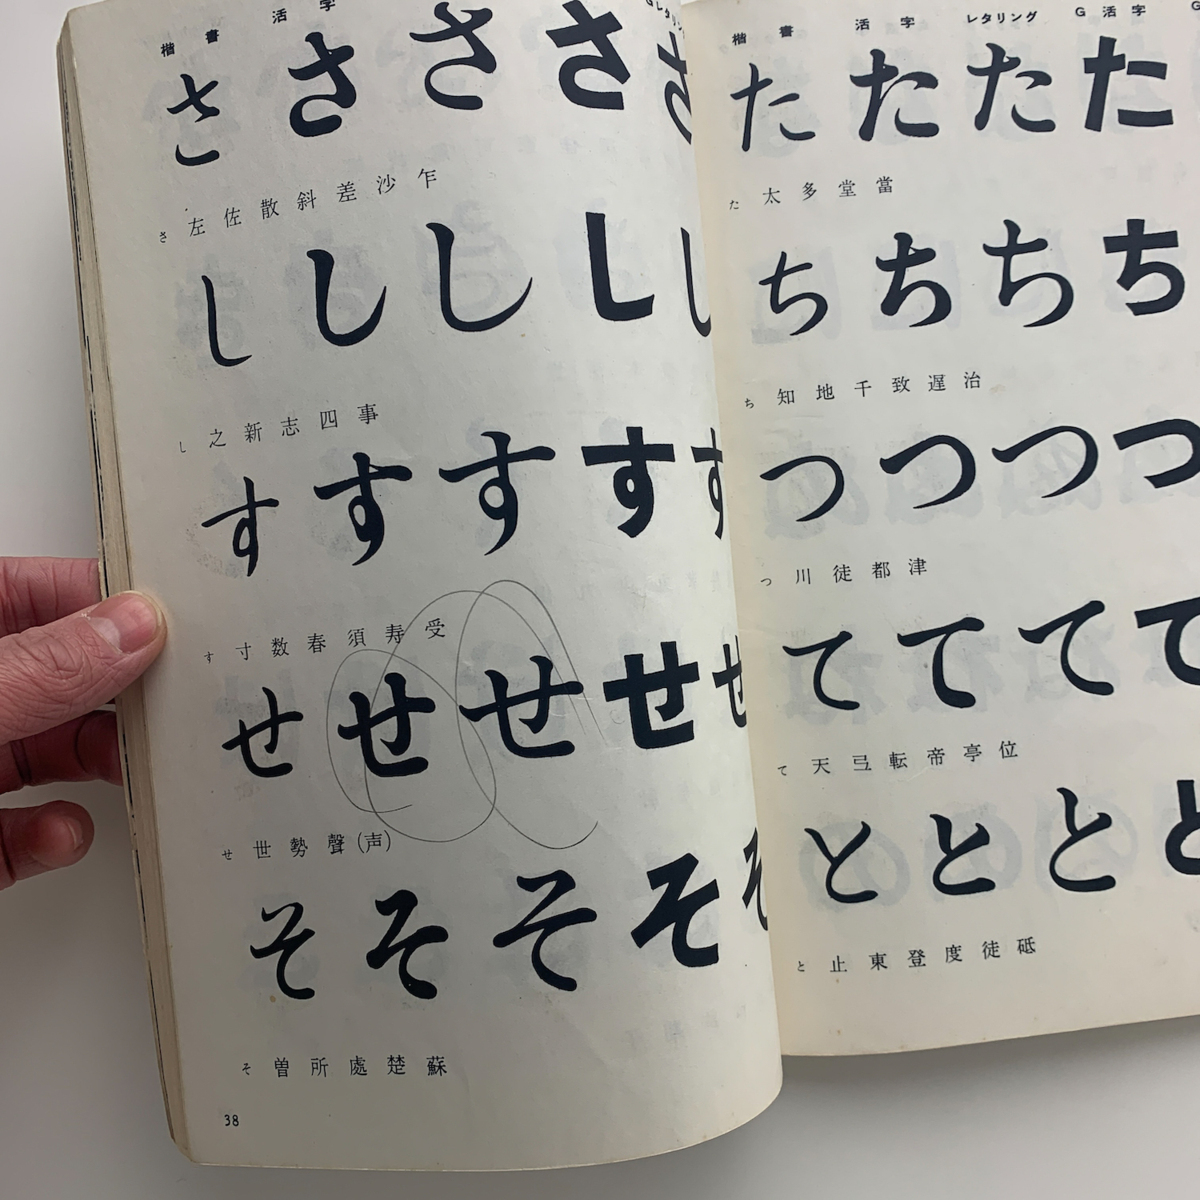 楷書 活字 Gレタリン
さ さ さ さ さ
さ 左佐散斜差沙乍
し し し し し
し 之新志四事
す す す す す
す 寸数春須寿受
せ せ せ せ せ
せ 世勢聲(声)
そ そ そ そ そ
そ 曽所處楚蘇
38
楷書 活字 レタリング G活字 G
た た た た
た 太多堂當
ち ち ち ち
ち 知地千致遅治
つ つ つ つ
つ 川徒都津
て て て て
て 天弖転帝亭位
と と と と
と 止東登度徒砥